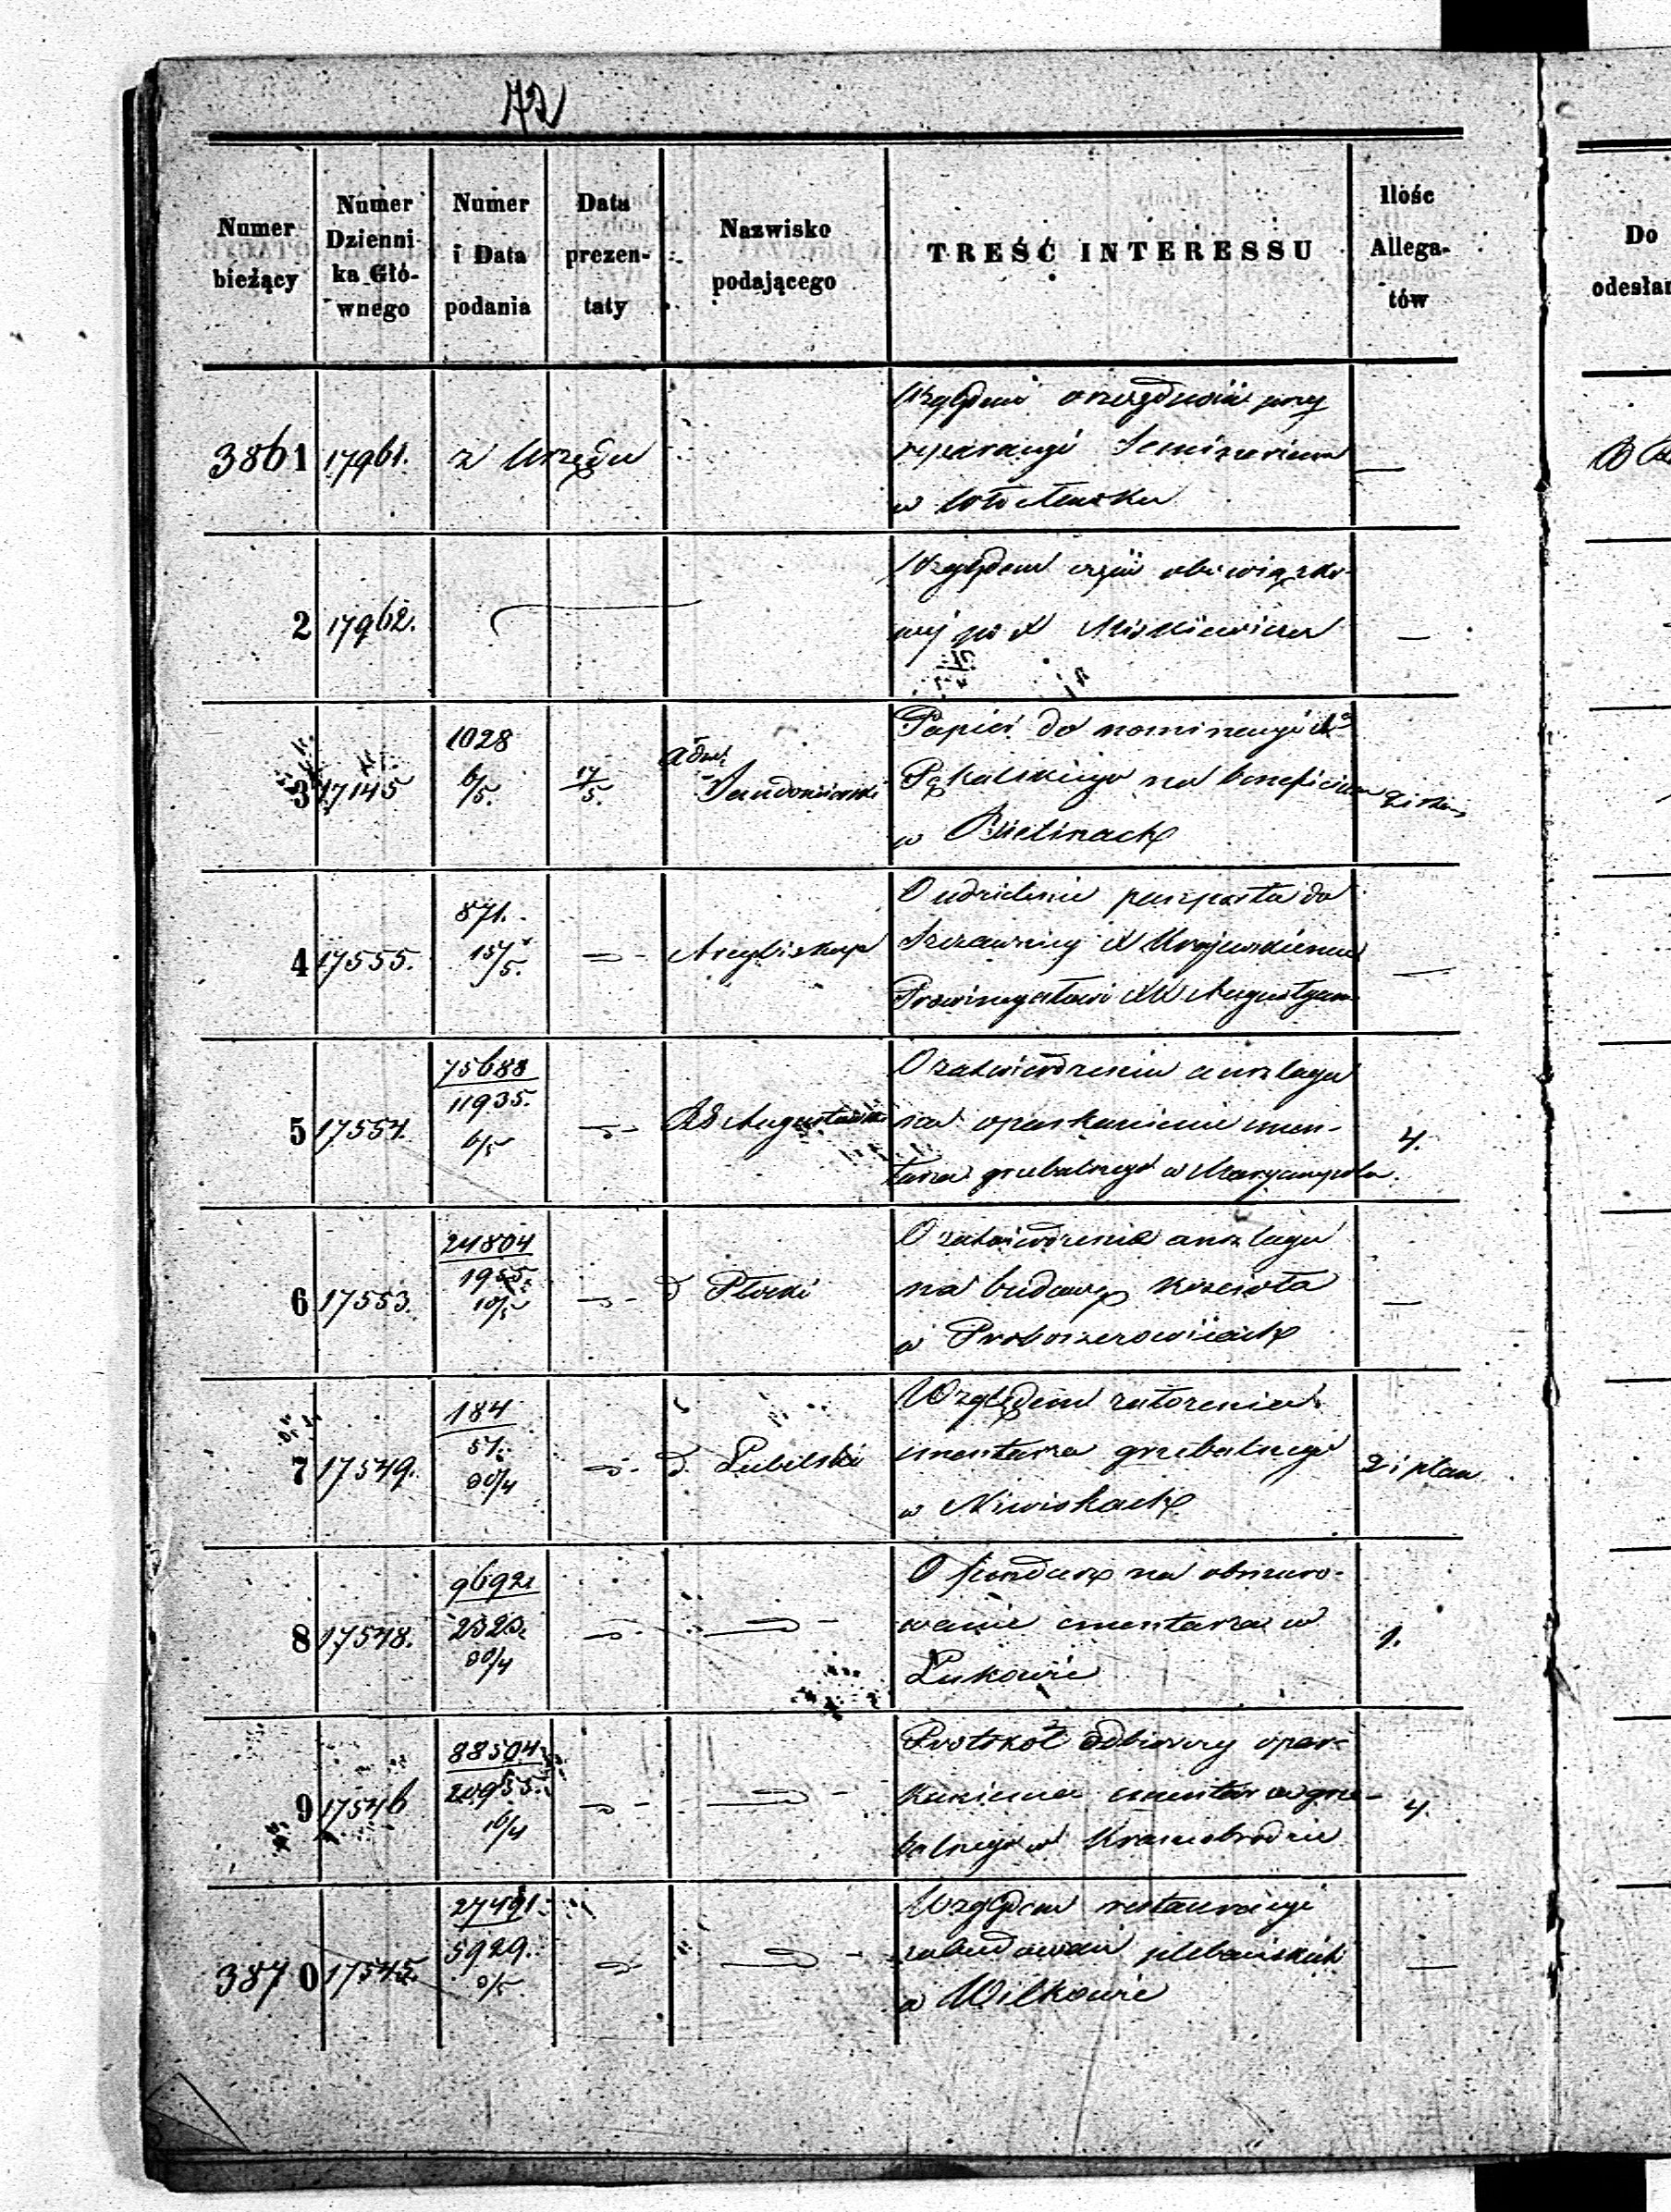 72
Numer bieżący
Numer Dzienni- ka Głó- wnego
Numer i Data podania
Data prezen- taty
Nazwisko podającego
TREŚĆ INTERESSU
Ilośc Allega- tów
Do odesłan
3861 17961. z Urzędu
Względem przy
reparacyi Seminarium
w
2 17962.
Względem obowiązko-
wej po X
3 17145 1028 6/5. 17/5. Adm. Sandomierski
Papier do nominacyi X
Pękalskiego na beneficium
w Bielinach
4 17555. 871. 15/5. Arcybiskup
O udzielenie paszportu do
Szczawnicy X Krajewskiemu
Prowincyałowi XX Augustyan
5 17554. 75688 11935. 6/5 RG Augustowski 4.
O zatwierdzenie anszlagu
na oparkanienie cmen-
tarza grzebalnego w Maryampolu.
6 17553. 24804 1955. 10/5 d Płocki
O zatwierdzenie anszlagu
na budowę kościoła
w Proboszczewicach
7 17549. 184 51. 30/4 d. Lubelski 2 i plan
Względem założenia
cmentarza grzebalnego
w Niwiskach
8 17548. 9692 2323. 30/4 1.
O fundusz na obmuro-
wanie cmentarza w
Łukowie
9 17546 88504 20955. 16/4 4.
Protokół odbiorczy opar-
kanienia cmentarza grze-
balnego w Krasnobrodzie
3870 17545. 27491. 5929. 3/5
Względem restauracyi
zabudowań plebańskich
w Wilkowie